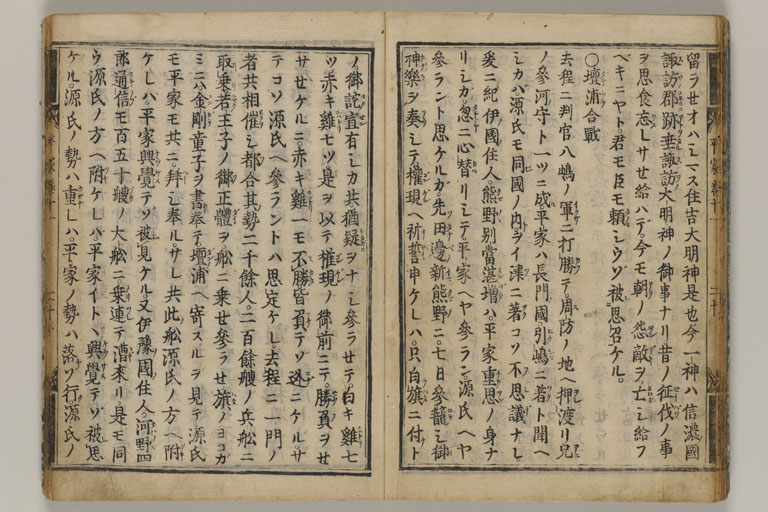 留ラせオハシマス住吉大明神是也今一神ハ信濃國
諏訪郡跡垂諏訪大明神ノ御事ナリ昔ノ征伐ノ事
ヲ思食忘レサせ給ハテ今モ朝ノ怨敵ヲ亡シ給フ
ベキニヤト君モ臣モ頼シウゾ被思召ケル。
〇壇浦合戰
去程ニ判官八嶋ノ軍ニ打勝テ周防ノ地ヘ押渡リ兄
ノ參河守ト一ツニ成平家ハ長門國引嶋ニ著ト聞ヘ
シカバ源氏モ同國ノ内ヲイ津ニ著コソ不思議ナレ
爰ニ紀伊國住人熊野別當湛増ハ平家重恩ノ身ナ
リシカ。忽ニ心替リシテ平家ヘヤ參ラン源氏ヘヤ
參ラント思ケルカ。先田邊新熊野ニ七日參籠シ御
神樂ヲ奏シテ權現ヘ祈誓申ケレハ。只白旗ニ付ト
ノ御詫宣有シカ共猶疑ヲナシ參ラせテ白キ雞七
ツ赤キ雞七ツ是ヲ以テ權現ノ御前ニテ勝負ヲせ
サせケルニ。赤キ雞一モ不勝皆負テソ迯ニケルサ
テコソ源氏ヘ參ラントハ思定ケレ。去程ニ一門ノ
者共相催シ都合其勢二千餘人。二百餘艘ノ兵舩ニ
取乗若王子ノ御正體ヲ舩ニ乗せ參ラせ旗ノヨコガ
ミニハ金剛童子ヲ書奉テ壇浦ヘ寄スルヲ見テ源氏
モ平家モ共ニ拜シ奉ル。サレ共此舩源氏ノ方ヘ附
ケレハ。平家興覺テソ被見ケル又伊豫國住人河野四
郎通信モ百五十艘ノ大舩ニ乗連テ漕來リ是モ同
ウ源氏ノ方ヘ附ケレバ。平家イトヽ興覺テゾ被思
ケル。源氏ノ勢ハ重レハ。平家ノ勢ハ落ソ行源氏ノ